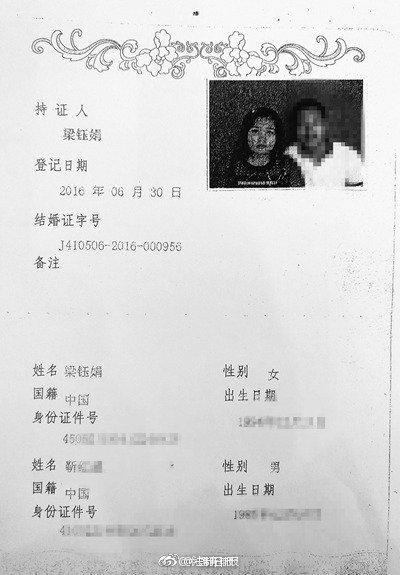 持证人
梁钰娟
登记日期
2016 年 06 月 30 日
结婚证字号
J410506-2016-000956
备注
姓名 梁钰娟 性别 女
国籍 中国 出生日期
身份证件号
姓名 性别 男
国籍 中国 出生日期
身份证件号
@法制日报